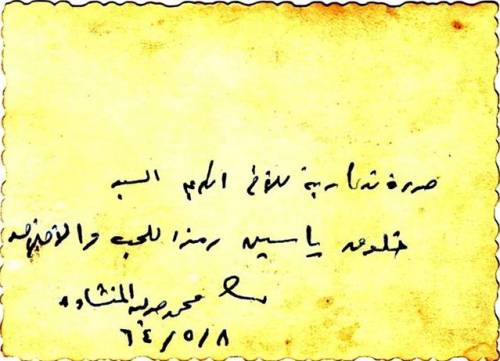 صورة تذكارية للأخ الكريم السيد
خلدون ياسين رمزا للحب والاخلاص
محمد صديق المنشاوي
٦٤/٥/٨